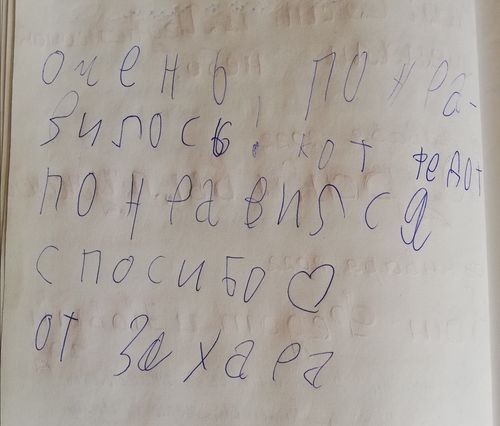 очень, понра-
вилось! кот федот
понравился
спосибо ♡
от Захара